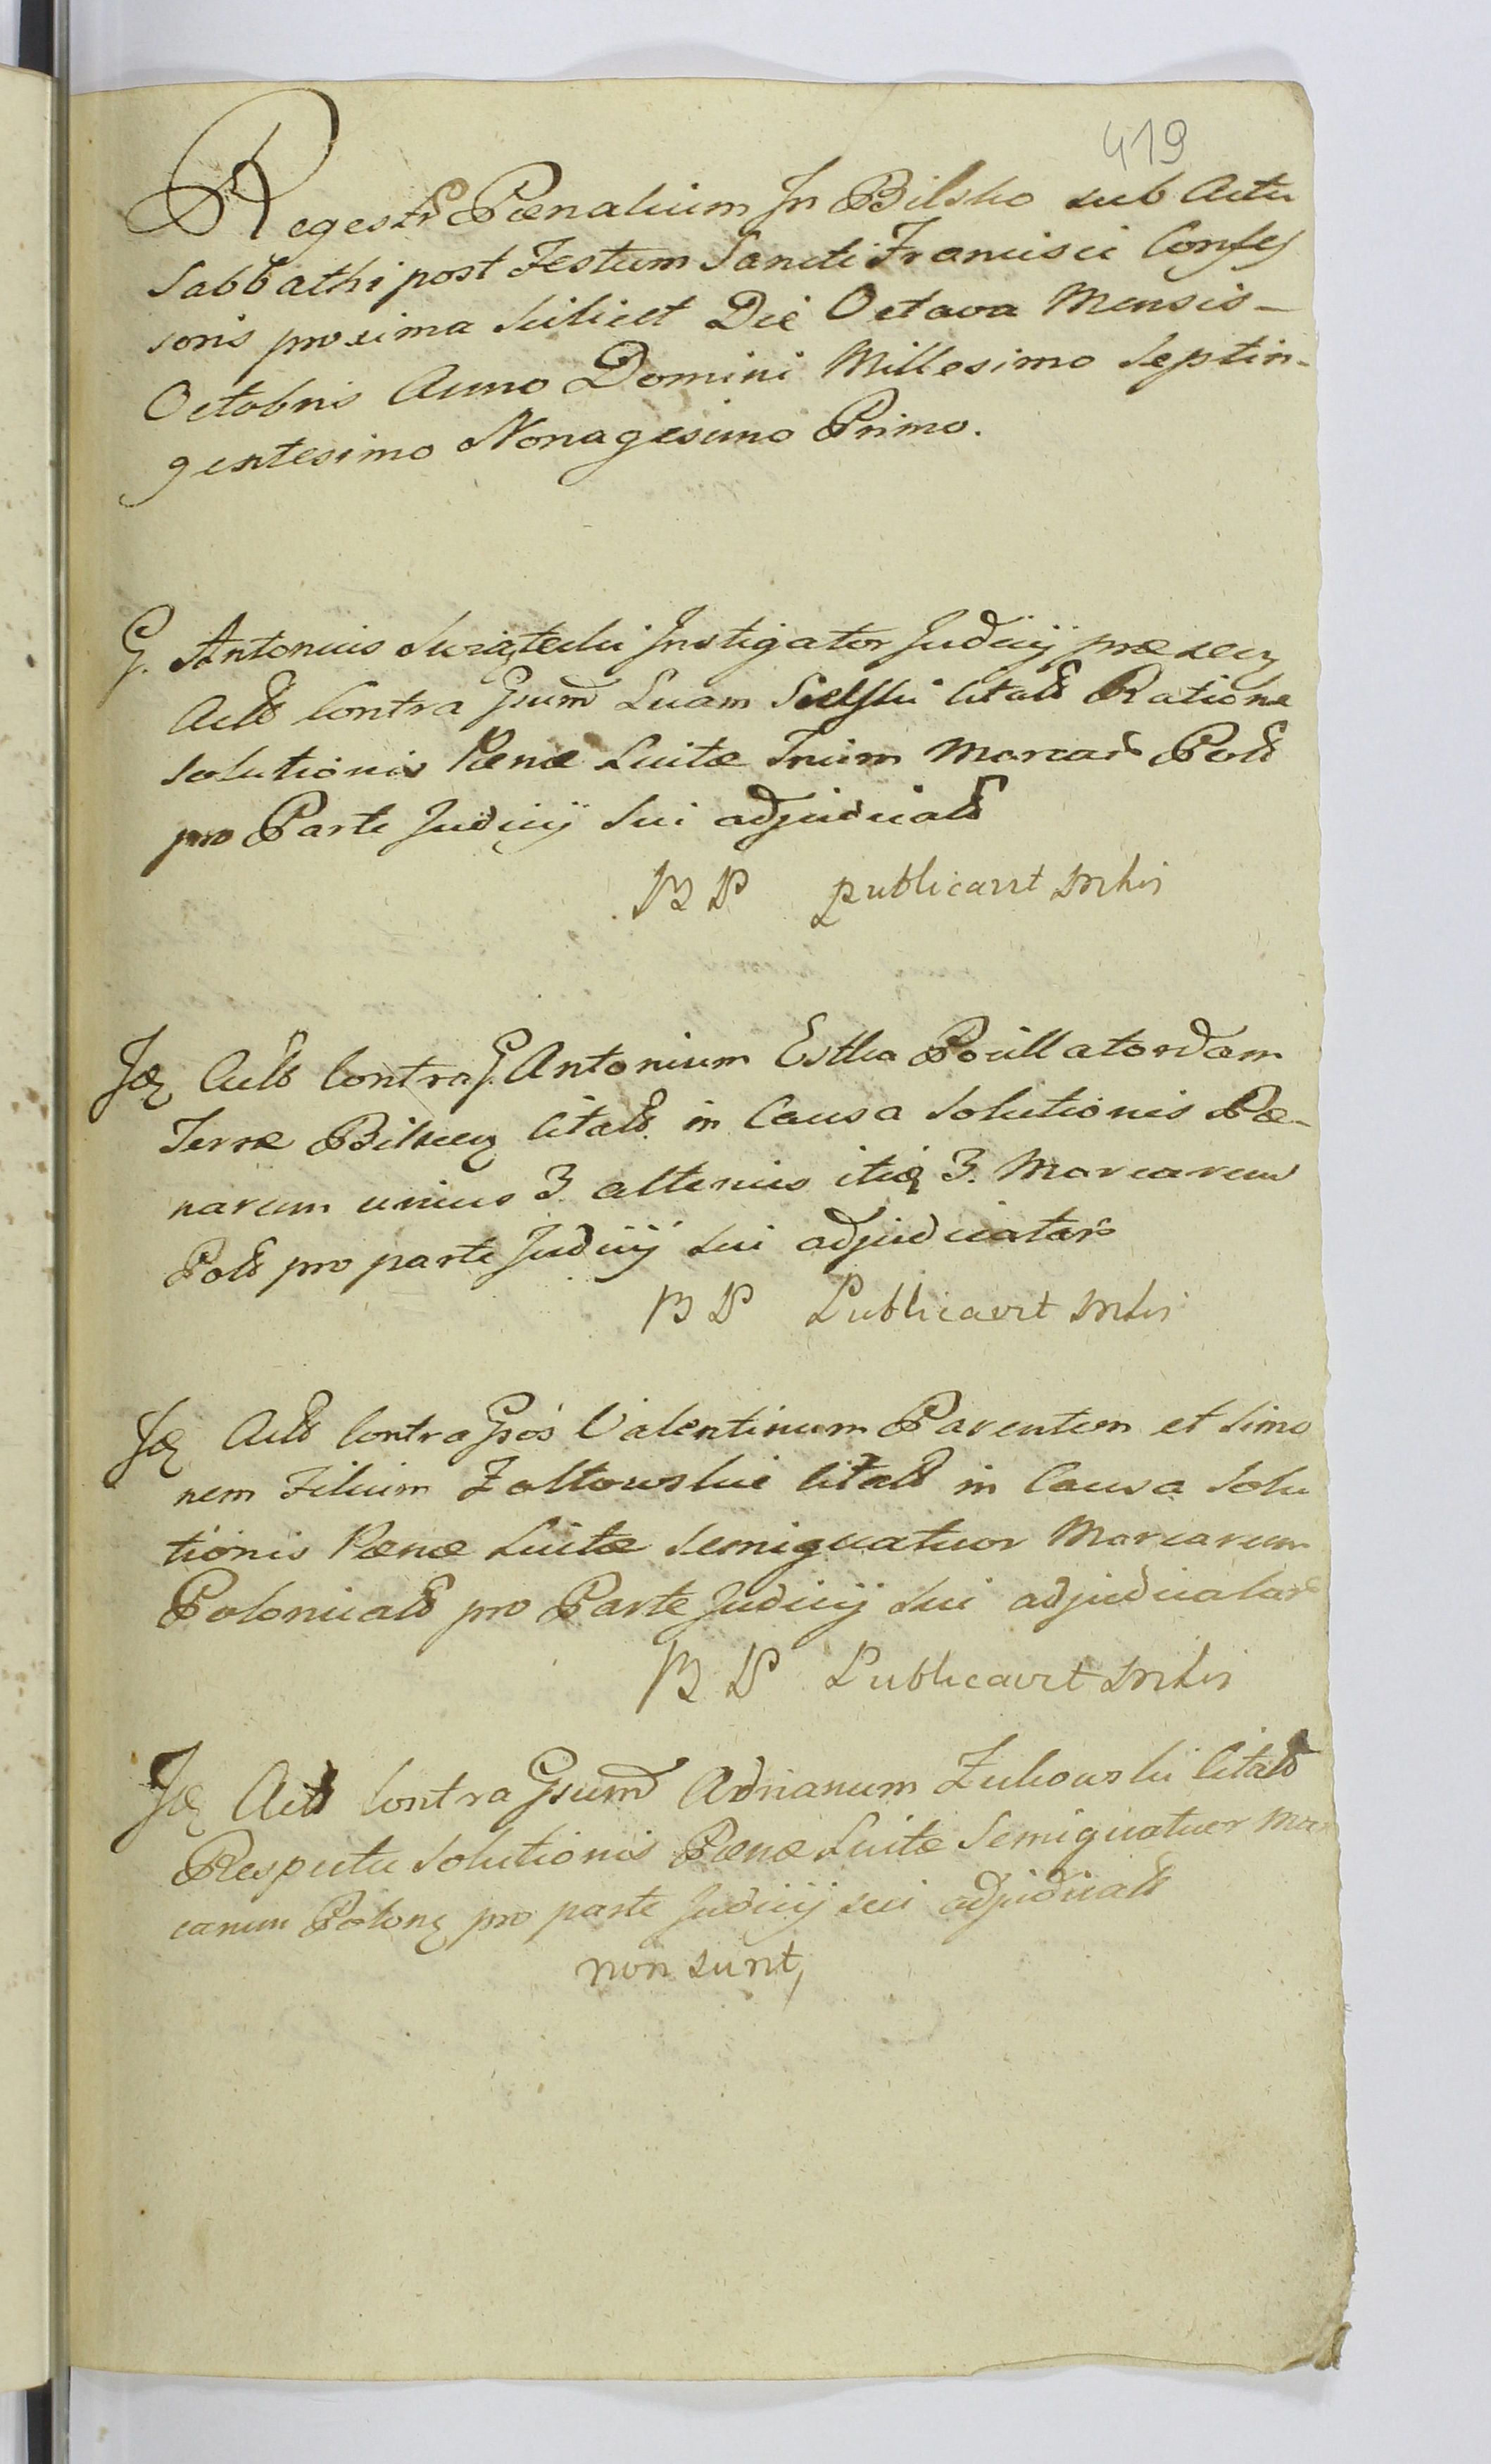 419
Regestr Pœnalium In Bilsko sub Actu
Sabbathi post Festum Sancti Francisci Confes
soris proxima scilicet Die Octava Mensis –
Octobris Anno Domini Millesimo Septin-
gentesimo Nonagesimo Primo.
G. Antonius Antonius Instigator Judicij præsen
Acts Contra Gsum Lucam Sielski Citats Ratione
Solutionis Pœnæ Luitæ Trium Marcar Pols
pro Parte Judicij sui adjudicats
publicavit
Contra G. Antonium Estka
Terræ citats in Causa Solutionis Pœ-
narum unius 3 alterius itiq 3. Marcarum
Pols pro parte Judicij sui adjudicatar
Publicavit
Acts Contra Gsos Valentinum Parentem et Simo
nem Filium Zaltowskie Citats in Causa Solu
tionis Pœnæ Luitæ Semiquatuor Marcarum
Polonicals pro Parte Judicij sui adjudicatar
Publicavit
Acts Contra Gsum Adrianum Zukowski Citats
Respectu Solutionis Pœnæ Luitæ Semiquatuor Mar
carum Polon pro parte Judicij sui adjudicats
non sunt